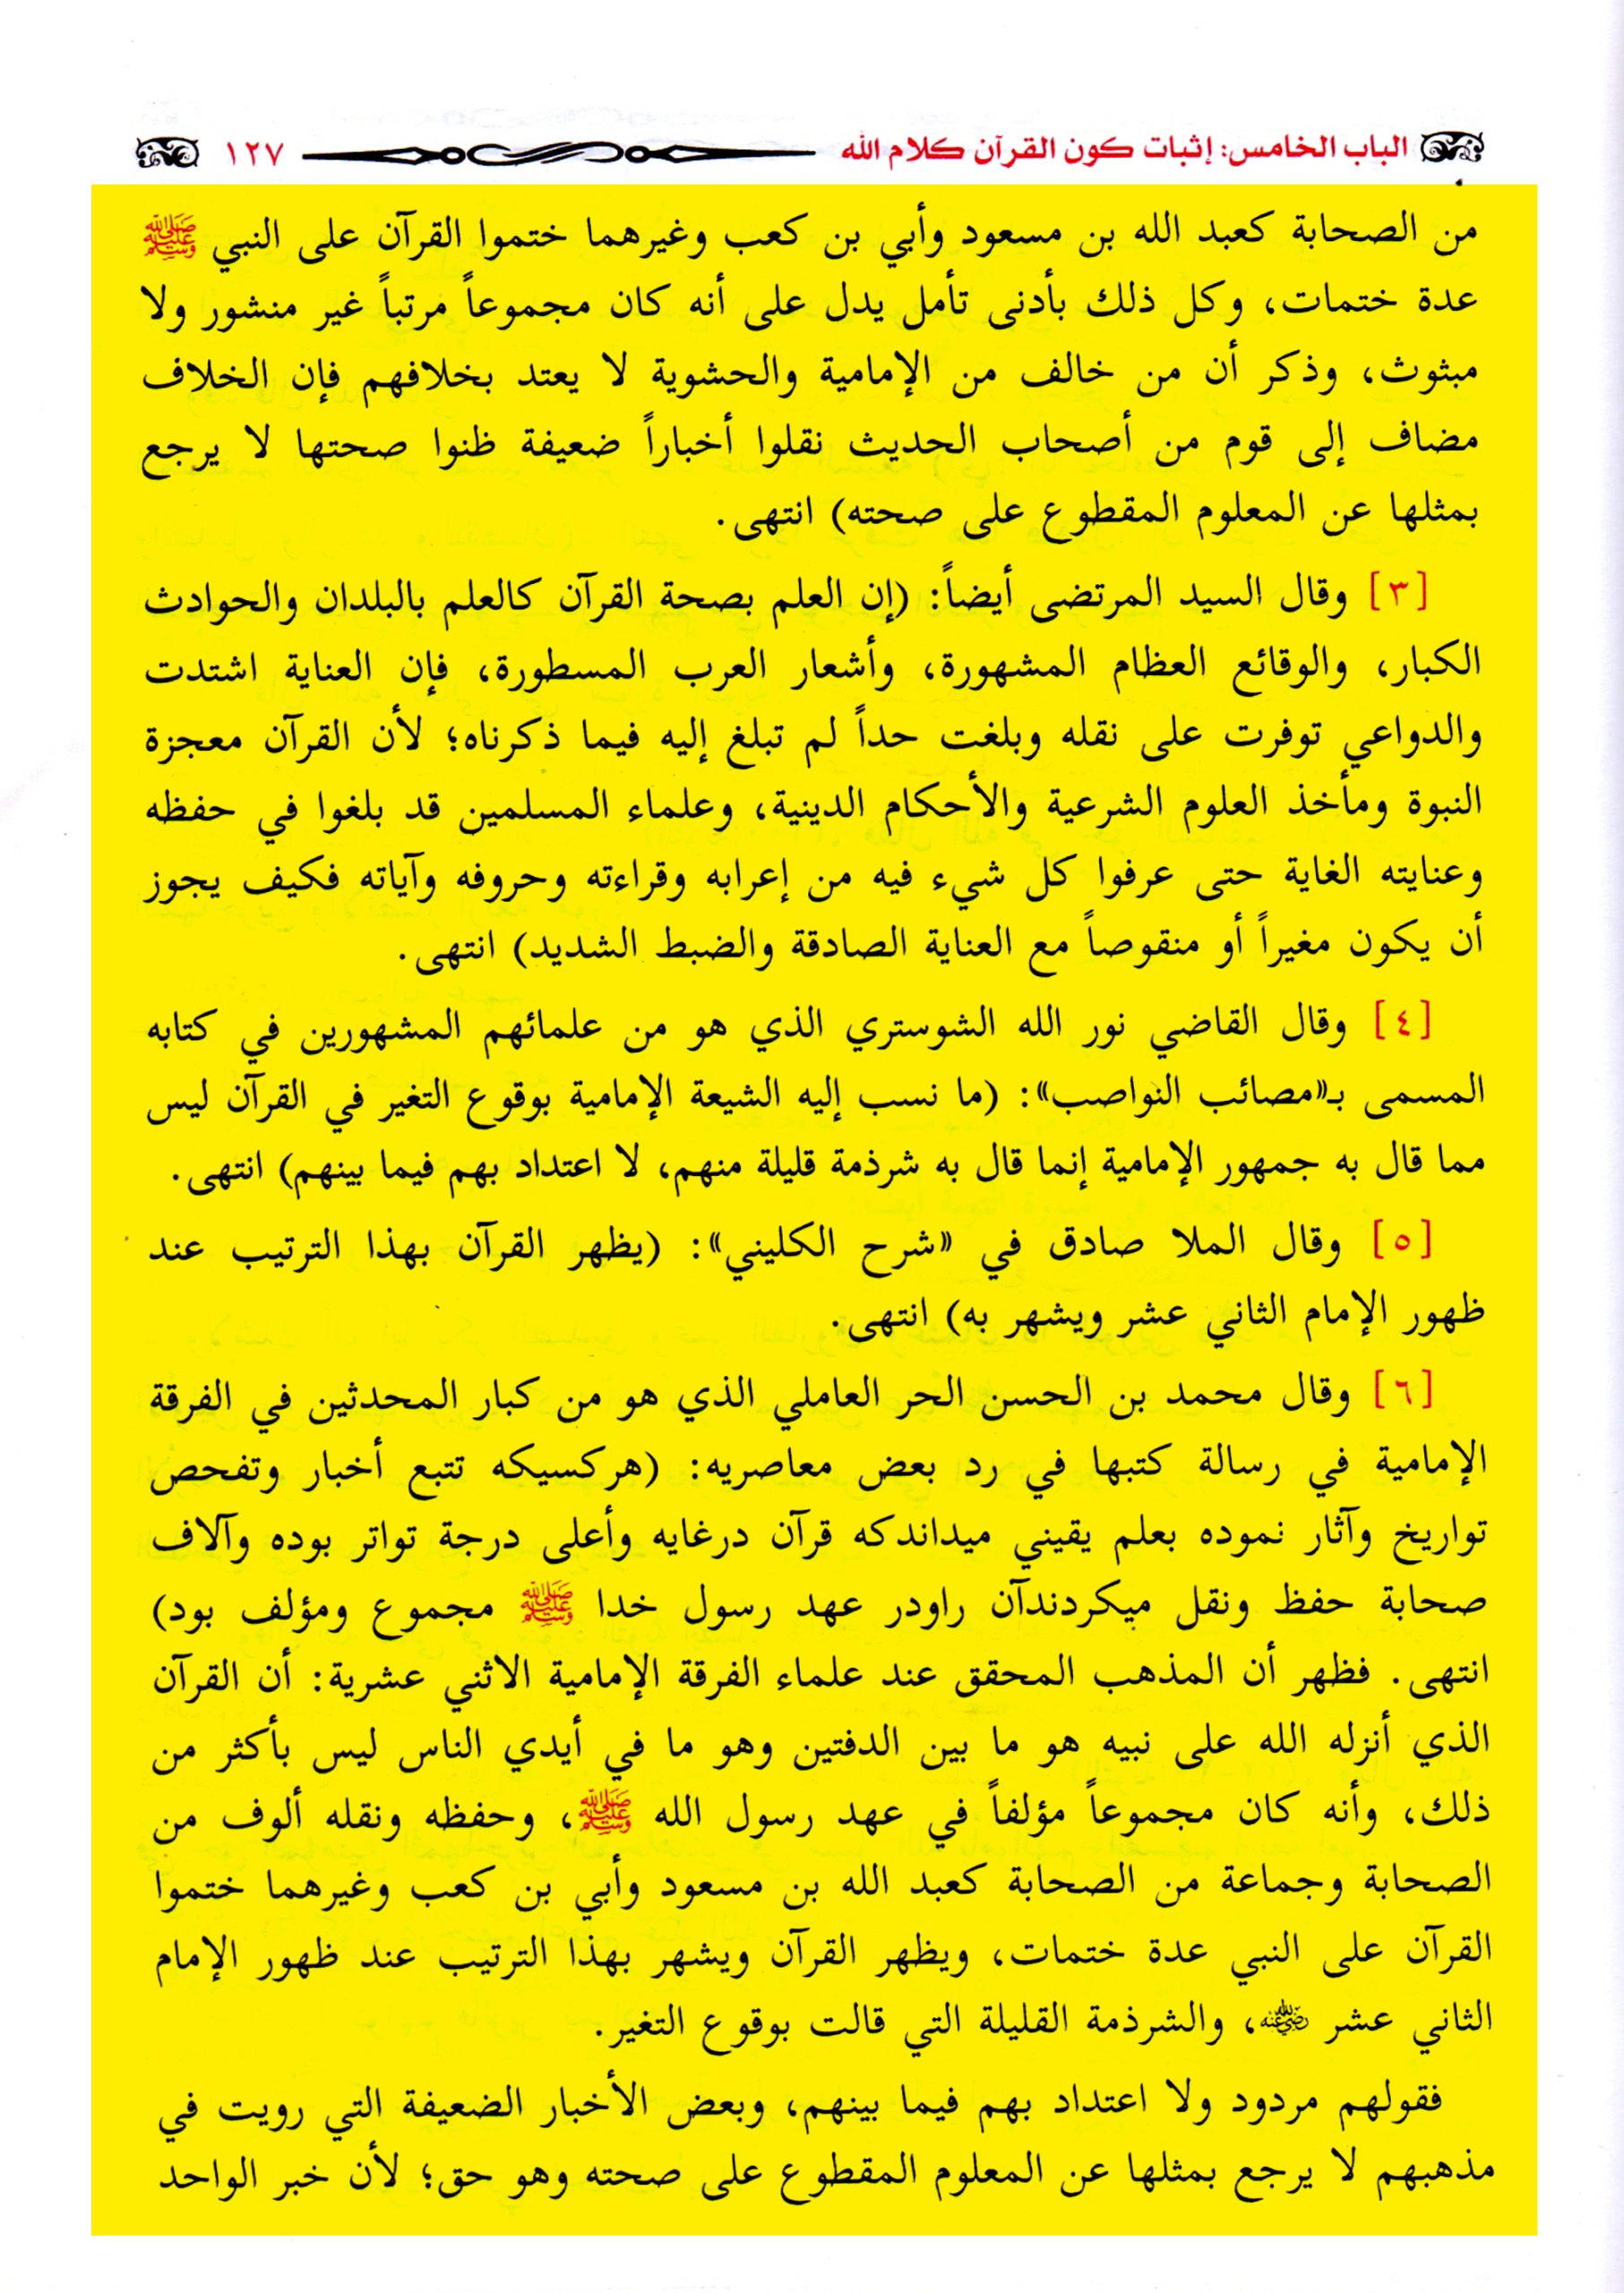 الباب الخامس: إثبات كون القرآن كلام الله ١٢٧
من الصحابة كعبد الله بن مسعود وأبي بن كعب وغيرهما ختموا القرآن على النبي ﷺ
عدة ختمات، وكل ذلك بأدنى تأمل يدل على أنه كان مجموعاً مرتباً غير منشور ولا
مبثوث، وذكر أن من خالف من الإمامية والحشوية لا يعتد بخلافهم فإن الخلاف
مضاف إلى قوم من أصحاب الحديث نقلوا أخباراً ضعيفة ظنوا صحتها لا يرجع
بمثلها عن المعلوم المقطوع على صحته) انتهى.
[٣] وقال السيد المرتضى أيضاً: (إن العلم بصحة القرآن كالعلم بالبلدان والحوادث
الكبار، والوقائع العظام المشهورة، وأشعار العرب المسطورة، فإن العناية اشتدت
والدواعي توفرت على نقله وبلغت حداً لم تبلغ إليه فيما ذكرناه؛ لأن القرآن معجزة
النبوة ومأخذ العلوم الشرعية والأحكام الدينية، وعلماء المسلمين قد بلغوا في حفظه
وعنايته الغاية حتى عرفوا كل شيء فيه من إعرابه وقراءته وحروفه وآياته فكيف يجوز
أن يكون مغيراً أو منقوصاً مع العناية الصادقة والضبط الشديد) انتهى.
[٤] وقال القاضي نور الله الشوستري الذي هو من علمائهم المشهورين في كتابه
المسمى بـ«مصائب النواصب»: (ما نسب إليه الشيعة الإمامية بوقوع التغير في القرآن ليس
مما قال به جمهور الإمامية إنما قال به شرذمة قليلة منهم، لا اعتداد بهم فيما بينهم) انتهى.
[٥] وقال الملا صادق في «شرح الكليني»: (يظهر القرآن بهذا الترتيب عند
ظهور الإمام الثاني عشر ويشهر به) انتهى.
[٦] وقال محمد بن الحسن الحر العاملي الذي هو من كبار المحدثين في الفرقة
الإمامية في رسالة كتبها في رد بعض معاصريه: (هركسيكه تتبع أخبار وتفحص
تواريخ وآثار نموده بعلم يقيني ميداندكه قرآن درغايه وأعلى درجة تواتر بوده وآلاف
صحابة حفظ ونقل ميكردندآن راودر عهد رسول خدا ﷺ مجموع ومؤلف بود)
انتهى. فظهر أن المذهب المحقق عند علماء الفرقة الإمامية الاثني عشرية: أن القرآن
الذي أنزله الله على نبيه هو ما بين الدفتين وهو ما في أيدي الناس ليس بأكثر من
ذلك، وأنه كان مجموعاً مؤلفاً في عهد رسول الله ﷺ، وحفظه ونقله ألوف من
الصحابة وجماعة من الصحابة كعبد الله بن مسعود وأبي بن كعب وغيرهما ختموا
القرآن على النبي عدة ختمات، ويظهر القرآن ويشهر بهذا الترتيب عند ظهور الإمام
الثاني عشر رضي الله عنه، والشرذمة القليلة التي قالت بوقوع التغير.
فقولهم مردود ولا اعتداد بهم فيما بينهم، وبعض الأخبار الضعيفة التي رويت في
مذهبهم لا يرجع بمثلها عن المعلوم المقطوع على صحته وهو حق؛ لأن خبر الواحد